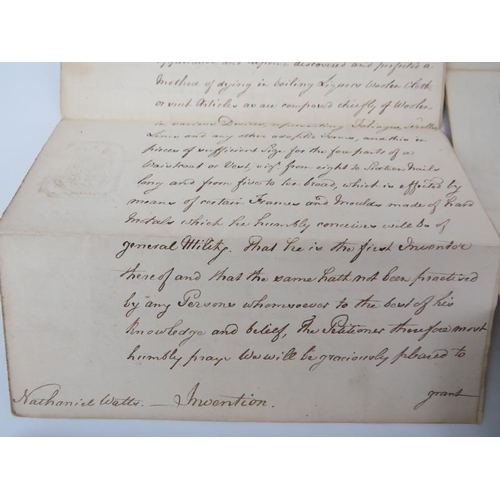 and expence discovered and perfected a
Method of dying in boiling Liquors Woolen Cloth
or such Articles as are composed chiefly of Woolen
in various Devices representing Foliages, Scrolls
Lines and any other adaptable Forms, and this in
pieces of sufficient Size for the fore parts of a
Waistcoat or Vest, vizt. from eight to Sixteen Nails
long and from five to ten broad, which is effected by
means of certain Frames and Moulds made of hard
Metals which he humbly conceives will be of
general Utility. That he is the first Inventor
thereof and that the same hath not been practised
by any Persons whomsoever to the best of his
Knowledge and belief, The Petitioner therefore most
humbly prays We will be graciously pleased to
grant
Nathaniel Watts. — Invention.